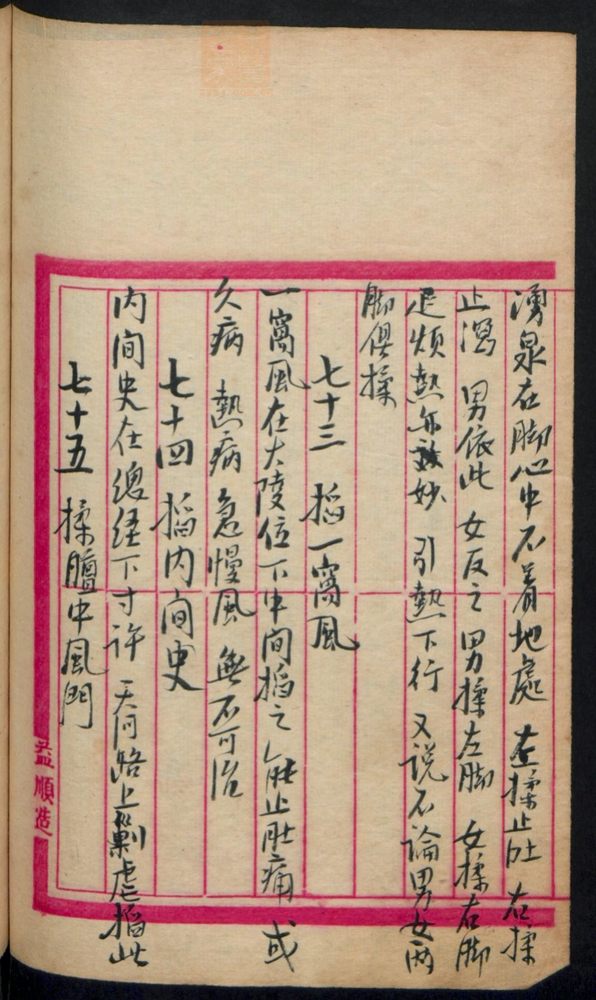 湧泉在脚心中不着地處 左揉止吐 右揉
止瀉 男依此 女反之 男揉左脚 女揉右脚
足煩熱亦效妙 引熱下行 又説不論男女兩
脚俱揉
七十三 掐一窩風
一窩風在大陵位下中間掐之 能止肚痛 或
久病 熱病 急慢風 無不可治
七十四 掐内间史
内间史在總経下寸許 天河路上 瘧掐此
七十五 揉膻中風門
益順造